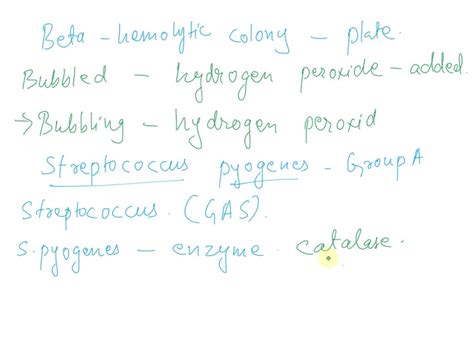 Beta - hemolytic colony - plate.
Bubbled - hydrogen peroxide - added.
→ Bubbling - hydrogen peroxid
Streptococcus pyogenes - Group A
Streptococcus. (GAS).
S. pyogenes - enzyme catalase.